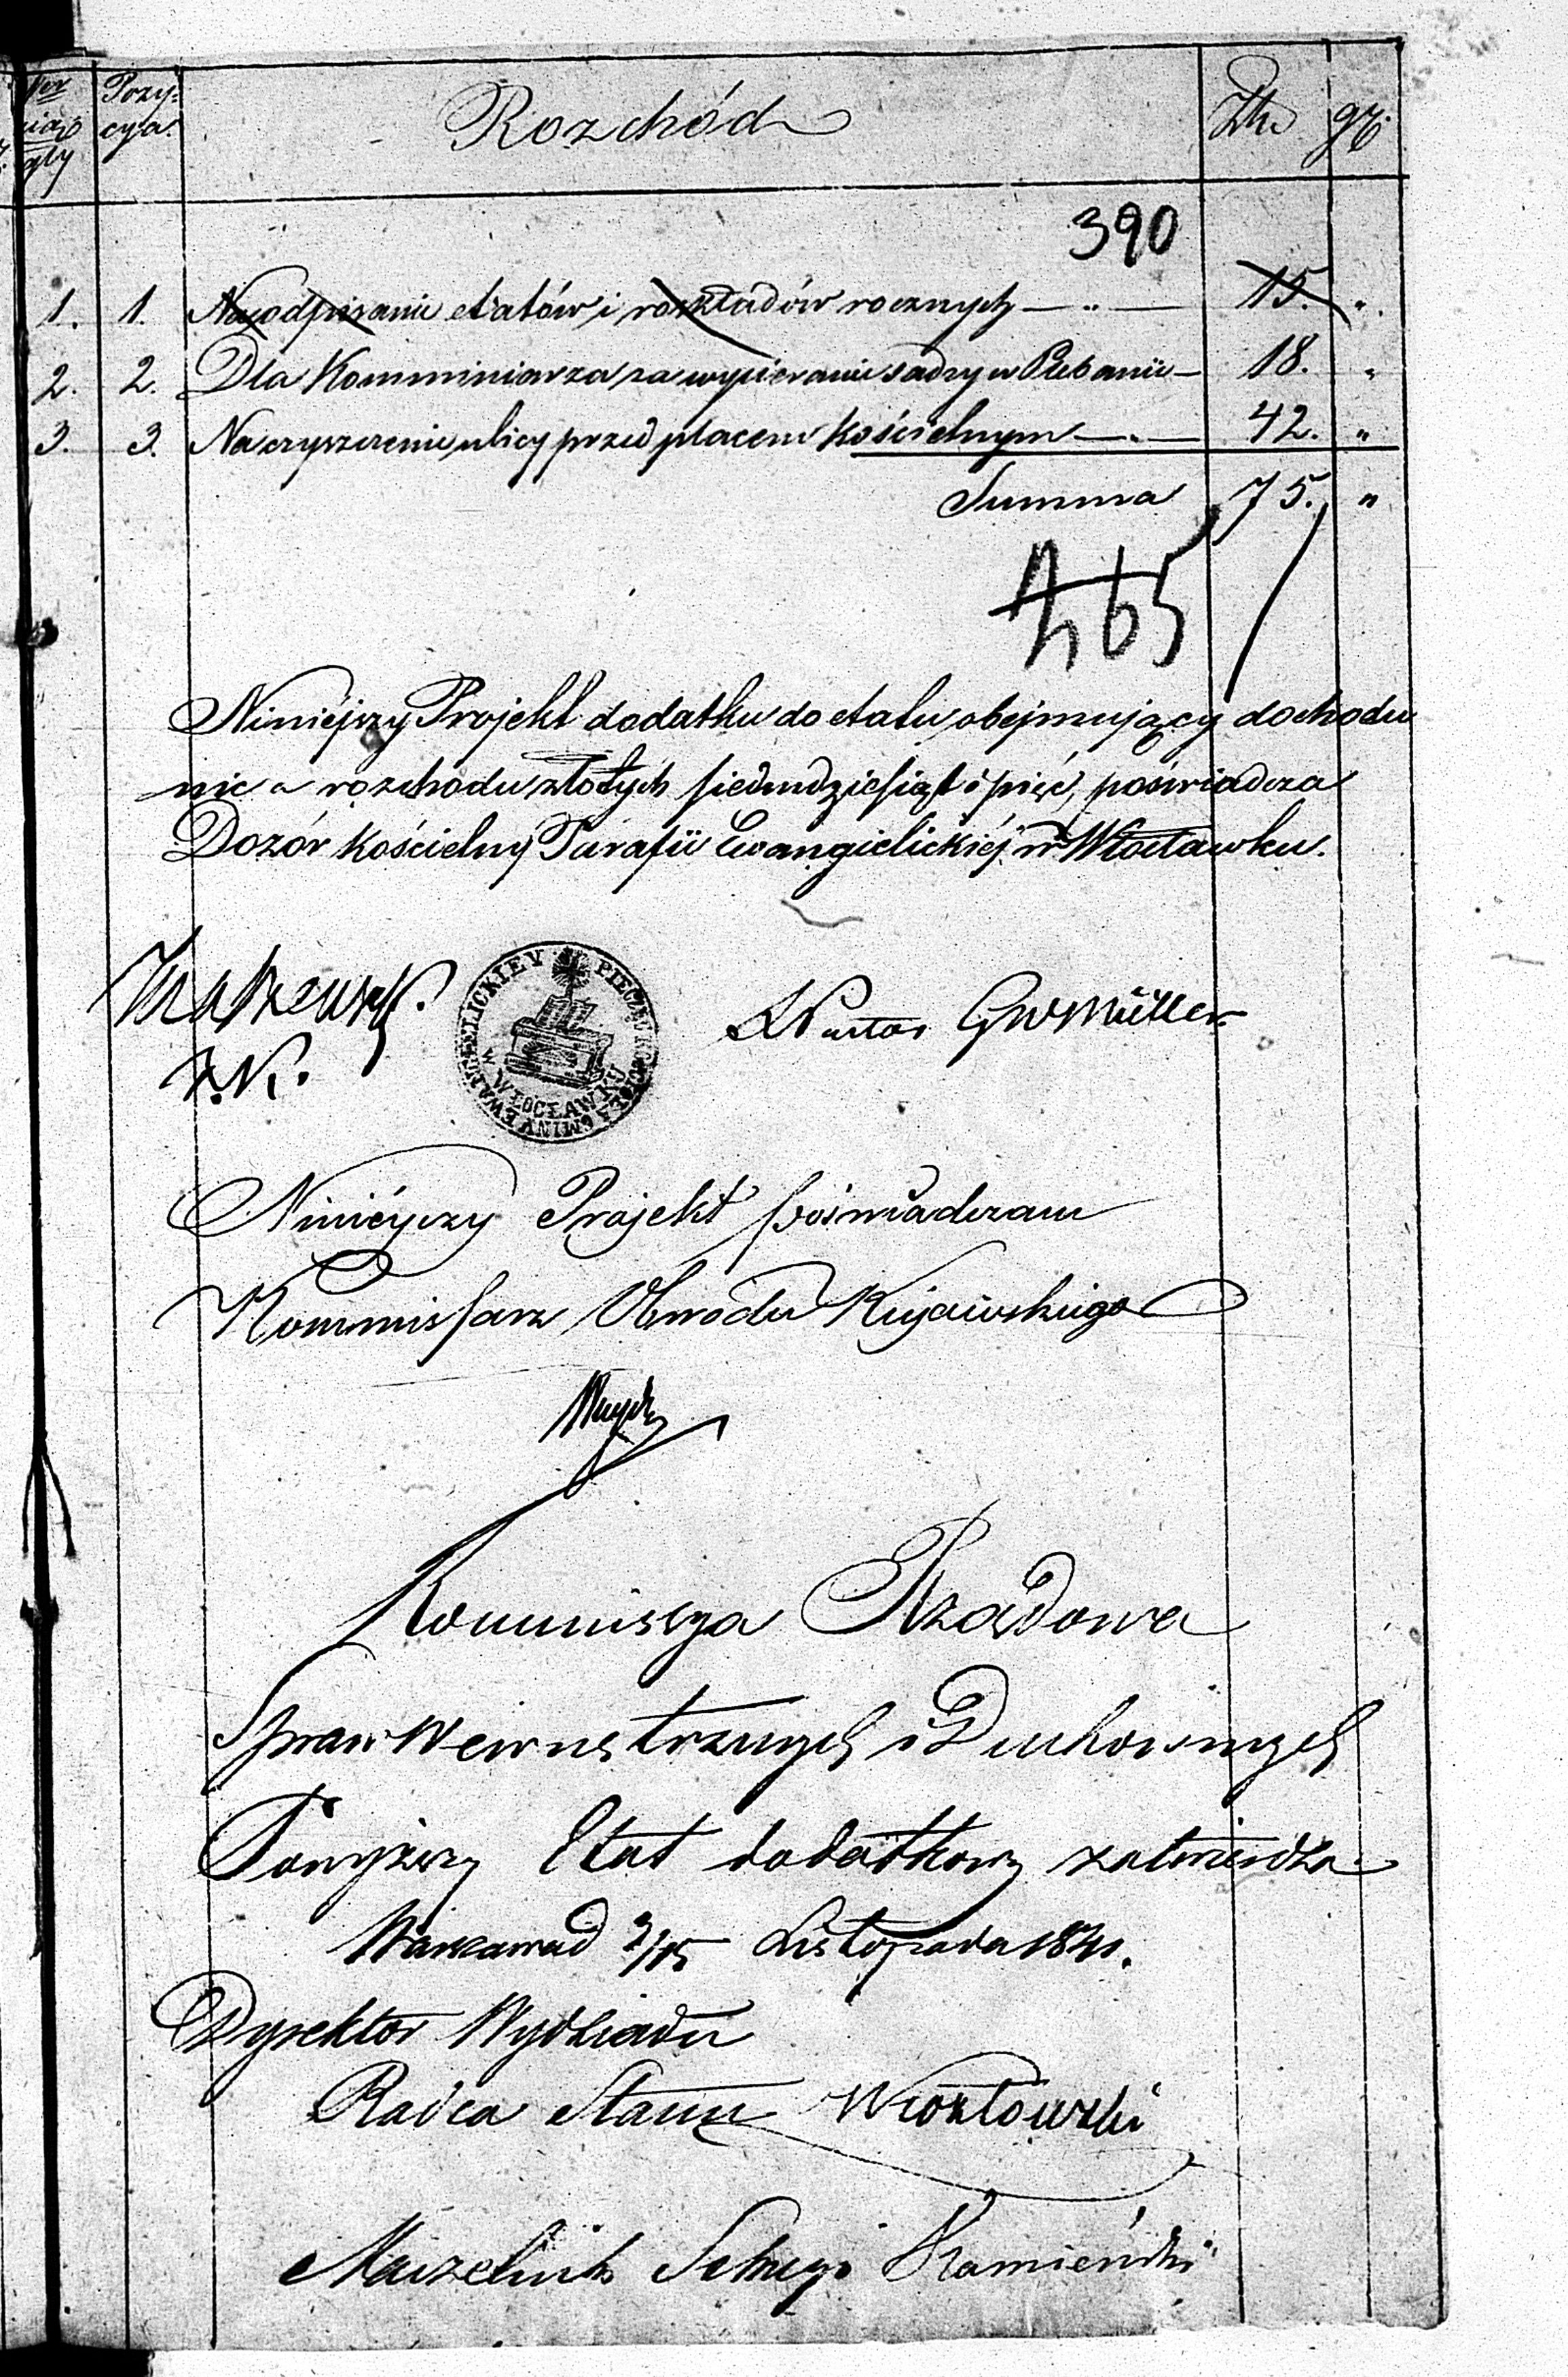 Pozy-
cya.
Rozchód
Złp gr.
390
1. 1. Na odpisanie etatów i rozkładów rocznych — „ — 15. „
2. 2. Dla Komminiarza za wycieranie sadzy w Plebanii — 18. „
3. 3. Na czyszczenie ulicy przed placem kościelnym — „ — 42. „
Summa 75. „
465
Niniejszy Projekt dodatku do etatu obejmujący dochodu
nic a rozchodu złotych siedmdziesiąt i pięć, poświadcza
Dozór kościelny Parafii Ewangielickiéj w Włocławku.
PIECZĘĆ KOŚCIOŁA GMINY EWANGELICKIEY
W WŁOCŁAWKU
Pastor GWMüller
Niniéyszy Projekt poświadczam
Kommissarz Obwodu Kujawskiego
Kommissya Rządowa
Spraw Wewnętrznych i Duchownych
Powyższy Etat dodatkowy zatwierdza
Warszawa d 3/15 Listopada 1841.
Dyrektor Wydziału
Radca Stanu Wkozłowski
Naczelnik Sekcyi Kamieński